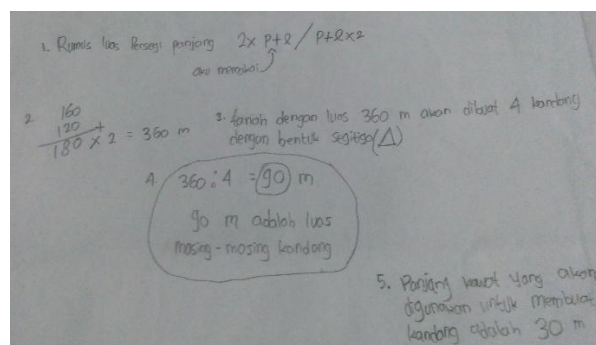 1. Rumus luas Persegi panjang 2x p+l / p+l x2
aku memakai
2. 160
120 +
180 x 2 = 360 m
3. tanah dengan luas 360 m akan dibuat 4 kandang
dengan bentuk segitiga (△)
4. 360 : 4 = 90 m
90 m adalah luas
masing-masing kandang
5. Panjang kawat yang akan
digunakan untuk membuat
kandang adalah 30 m